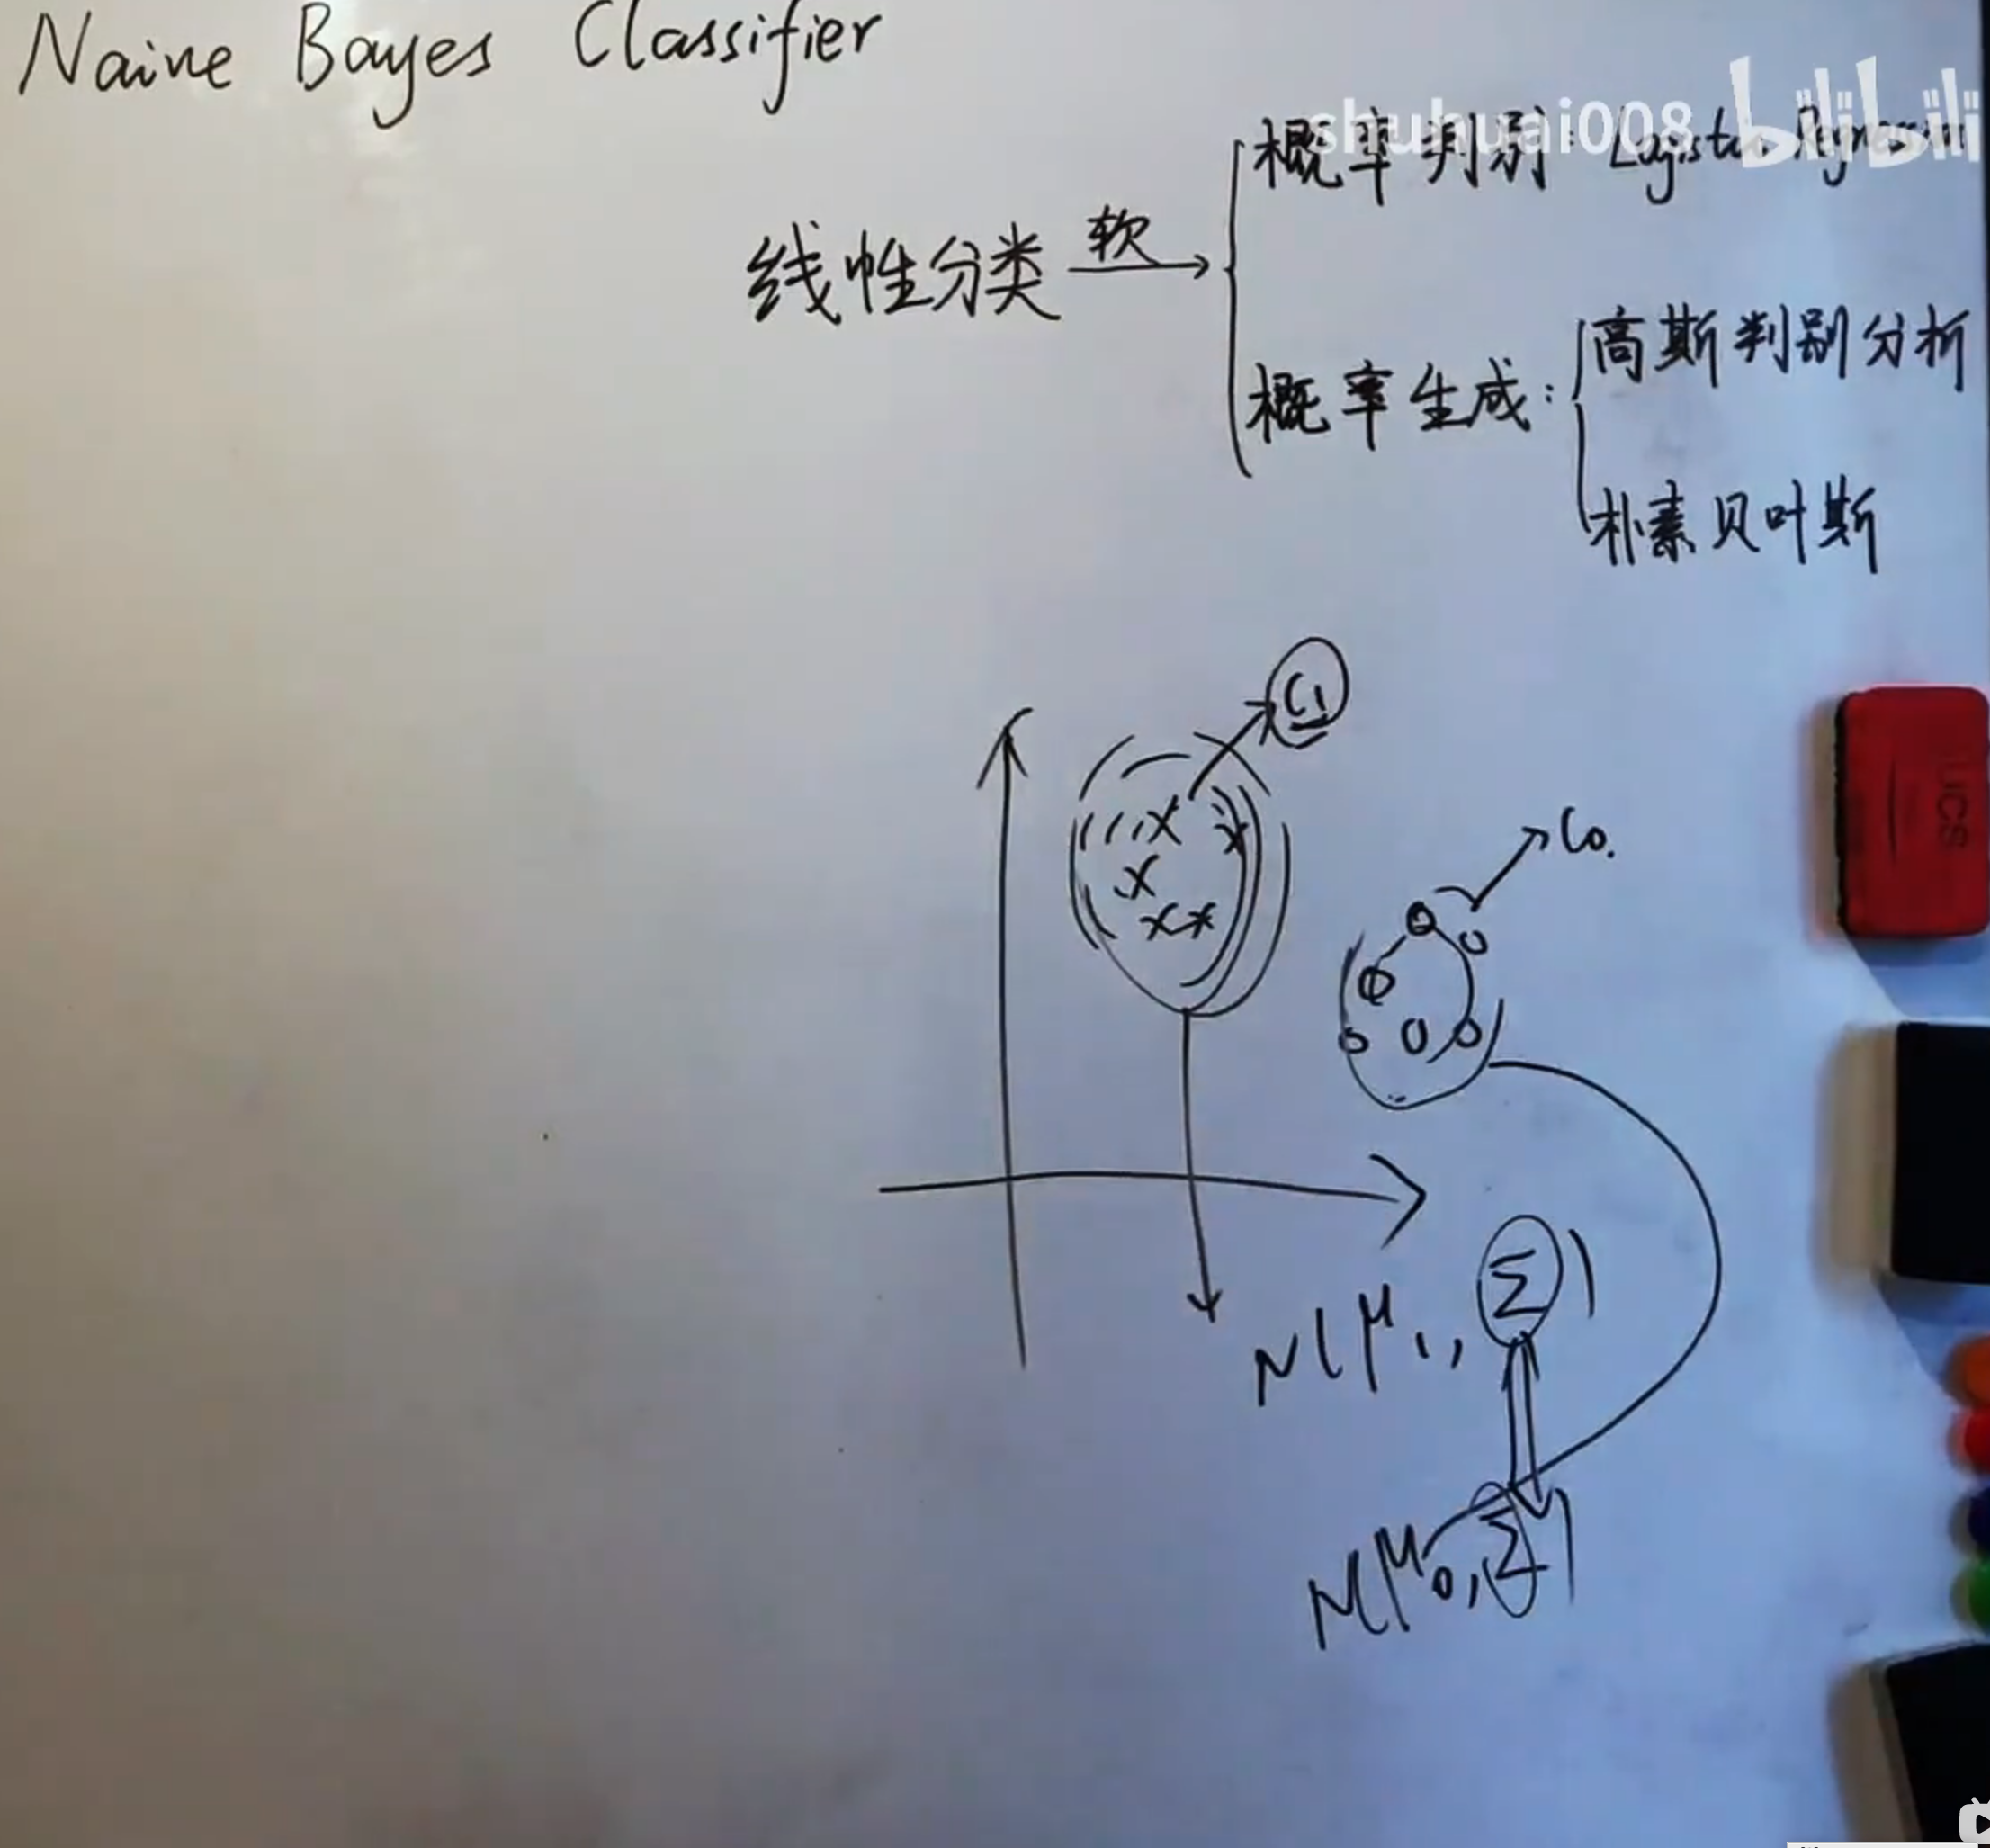 Naive Bayes Classifier
shuhuai008 bilibili
概率判别: Logistic Regression
线性分类 软
概率生成:
高斯判别分析
朴素贝叶斯
C1
C0.
UCS
N(μ1, Σ)
N(μ0, Σ)